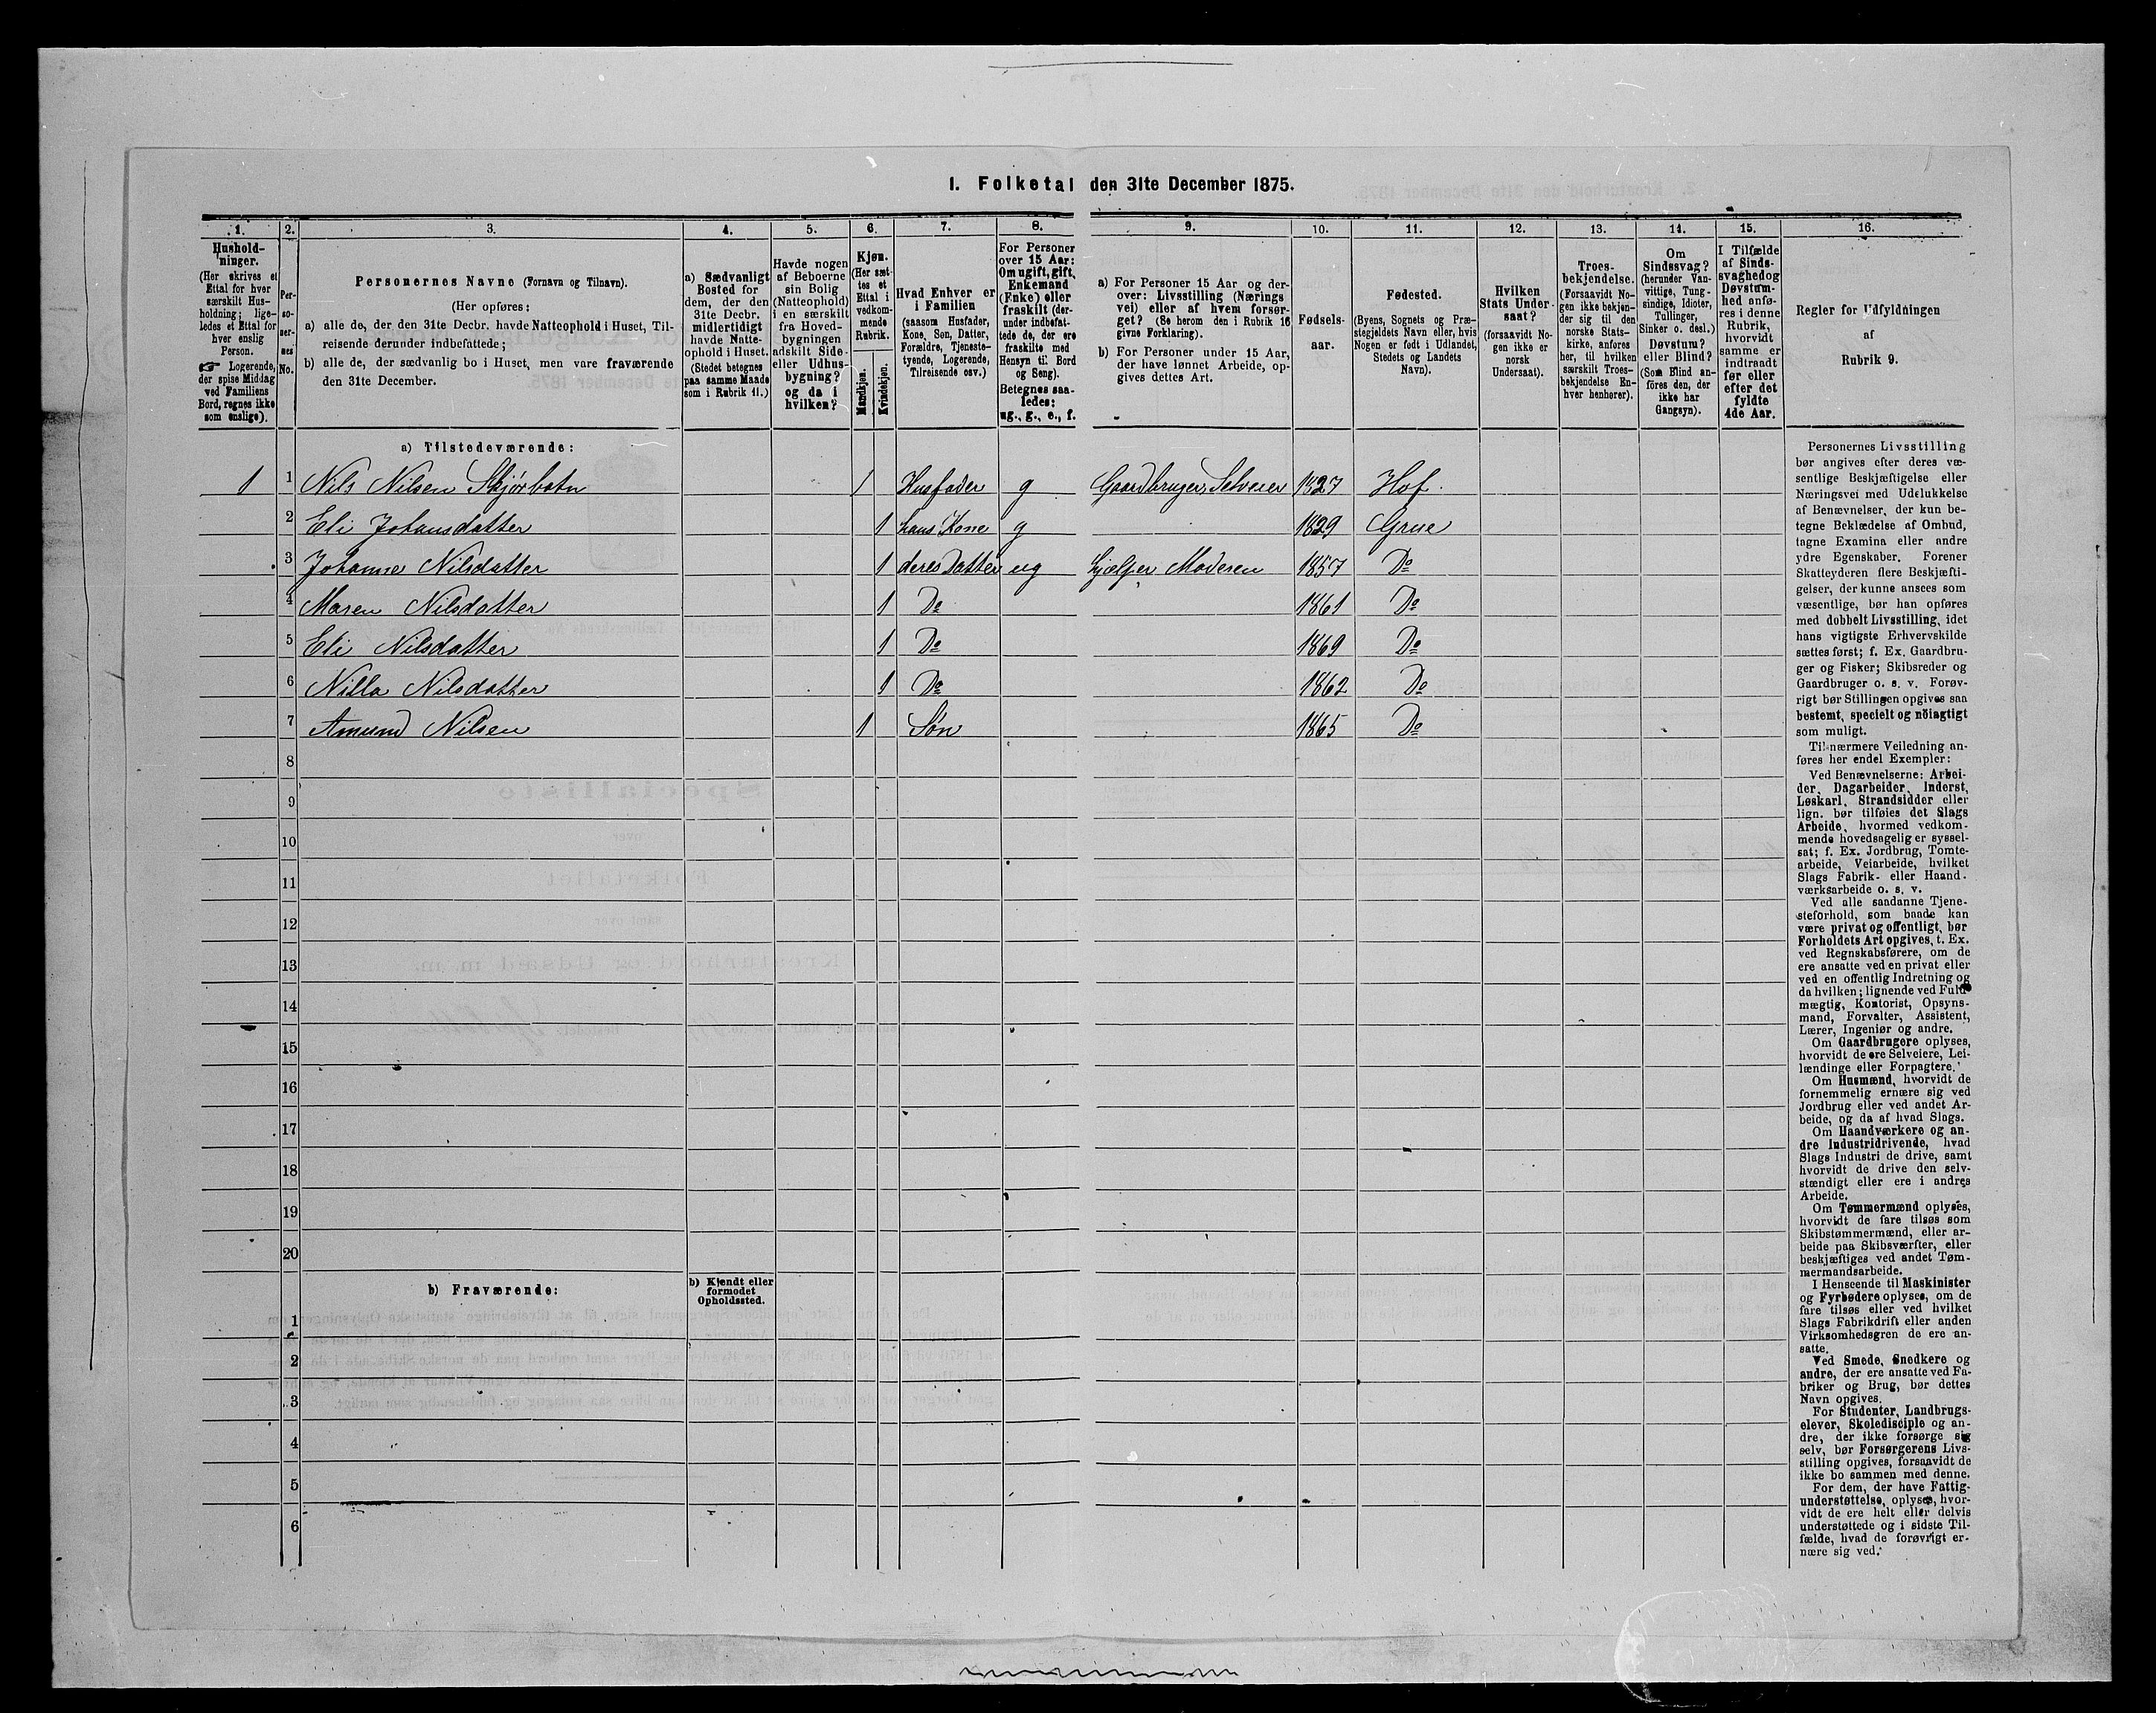 I. Folketal den 31te December 1875.
1. 2. 3. 4. 5. 6. 7. 8. 9. 10. 11. 12. 13. 14. 15. 16.
Hushold-
ninger.
(Her skrives et
Ettal for hver
særskilt Hus-
holdning; lige-
ledes et Ettal for
hver enslig
Person.
☞ Logerende,
der spise Middag
ved Familiens
Bord, regnes ikke
som enslige).
Per-
so-
ner-
nes
No.
Personernes Navne (Fornavn og Tilnavn).
(Her opføres:
a) alle de, der den 31te Decbr. havde Natteophold i Huset, Til-
reisende derunder indbefattede;
b) alle de, der sædvanlig bo i Huset, men vare fraværende
den 31te December.
a) Sædvanligt
Bosted for
dem, der den
31te Decbr.
midlertidigt
havde Natte-
ophold i Huset.
(Stedet betegnes
paa samme Maade
som i Rubrik 11.)
Havde nogen
af Beboerne
sin Bolig
(Natteophold)
i en særskilt
fra Hoved-
bygningen
adskilt Side-
eller Udhus-
bygning?
og da i
hvilken?
Kjøn.
(Her sæt-
tes et
Ettal i
vedkom-
mende
Rubrik.
Mandkjøn.
Kvindekjøn.
Hvad Enhver er
i Familien
(saasom Husfader,
Kone, Søn, Datter,
Forældre, Tjeneste-
tyende, Logerende,
Tilreisende osv.)
For Personer
over 15 Aar:
Om ugift, gift,
Enkemand
(Enke) eller
fraskilt (der-
under indbefat-
tede de, der ere
fraskilte med
Hensyn til Bord
og Seng).
Betegnes saa-
ledes:
ug., g., e., f.
a) For Personer 15 Aar og der-
over: Livsstilling (Nærings
vei) eller af hvem forsør-
get? (Se herom den i Rubrik 16
givne Forklaring).
b) For Personer under 15 Aar,
der have lønnet Arbeide, op-
gives dettes Art.
Fødsels-
aar.
Fødested.
(Byens, Sognets og Præ-
stegjeldets Navn eller, hvis
Nogen er født i Udlandet,
Stedets og Landets
Navn).
Hvilken
Stats Under-
saat?
(forsaavidt No-
gen ikke er
norsk
Undersaat).
Troes-
bekjendelse.
(Forsaavidt No-
gen ikke bekjen-
der sig til den
norske Stats-
kirke, anføres
her, til hvilken
særskilt Troes-
bekjendelse En-
hver henhører).
Om
Sindssvag?
(herunder Van-
vittige, Tung-
sindige, Idioter,
Tullinger,
Sinker o. desl.)
Døvstum?
eller Blind?
(Som Blind an-
føres den, der
ikke har
Gangsyn).
I Tilfælde
af Sinds-
svaghed og
Døvstum-
hed anfø-
res i denne
Rubrik,
hvorvidt
samme er
indtraadt
før eller
efter det
fyldte
4de Aar.
Regler for Udfyldningen
af
Rubrik 9.
a) Tilstedeværende:
1 1 Nils Nilsen Skjørbotn 1 Husfader g Gaardbruger, Selveier 1827 Hof.
2 Eli Johansdatter 1 hans Kone g 1829 Grue
3 Johanne Nilsdatter 1 deres Datter ug hjælper Moderen 1857 Do
4 Maren Nilsdatter 1 Do 1861 Do
5 Eli Nilsdatter 1 Do 1869 Do
6 Nilla Nilsdatter 1 Do 1862 Do
7 Amund Nilsen 1 Søn 1865 Do
8
9
10
11
12
13
14
15
16
17
18
19
20
b) Fraværende:
b) Kjendt eller
formodet
Opholdssted.
1
2
3
4
5
6
Personernes Livsstilling
bør angives efter deres væ-
sentlige Beskjæftigelse eller
Næringsvei med Udelukkelse
af Benævnelser, der kun be-
tegne Beklædelse af Ombud,
tagne Examina eller andre
ydre Egenskaber. Forener
Skatteyderen flere Beskjæfti-
gelser, der kunne ansees som
væsentlige, bør han opføres
med dobbelt Livsstilling, idet
hans vigtigste Erhvervskilde
sættes først; f. Ex. Gaardbru-
ger og Fisker; Skibsreder og
Gaardbruger o. s. v. Forøv-
rigt bør Stillingen opgives saa
bestemt, specielt og nøiagtigt
som muligt.
Til nærmere Veiledning an-
føres her endel Exempler:
Ved Benævnelserne: Arbei-
der, Dagarbeider, Inderst,
Løskarl, Strandsidder eller
lign. bør tilføies det Slags
Arbeide, hvormed vedkom-
mende hovedsagelig er syssel-
sat; f. Ex. Jordbrug, Tomte-
arbeide, Veiarbeide, hvilket
Slags Fabrik- eller Haand-
værksarbeide o. s. v.
Ved alle saadanne Tjene-
steforhold, som baade kan
være privat og offentligt, bør
Forholdets Art opgives, t. Ex.
ved Regnskabsførere, om de
ere ansatte ved en privat eller
ved en offentlig Indretning og
da hvilken; lignende ved Fuld-
mægtig, Kontorist, Opsyns-
mand, Forvalter, Assistent,
Lærer, Ingeniør og andre.
Om Gaardbrugere oplyses,
hvorvidt de ere Selveiere, Lei-
lændinge eller Forpagtere.
Om Husmænd, hvorvidt de
fornemmelig ernære sig ved
Jordbrug eller ved andet Ar-
beide, og da af hvad Slags.
Om Haandværkere og an-
dre Industridrivende, hvad
Slags Industri de drive, samt
hvorvidt de drive den selv-
stændigt eller ere i andres
Arbeide.
Om Tømmermænd oplyses,
hvorvidt de fare tilsøs som
Skibstømmermænd, eller ar-
beide paa Skibsværfter, eller
beskjæftiges ved andet Tøm-
mermandsarbeide.
I Henseende til Maskinister
og Fyrbødere oplyses, om de
fare tilsøs eller ved hvilket
Slags Fabrikdrift eller anden
Virksomhedsgren de ere an-
satte.
Ved Smede, Snedkere og
andre, der ere ansatte ved Fa-
briker og Brug, bør dettes
Navn opgives.
For Studenter, Landbrugs-
elever, Skoledisciple og an-
dre, der ikke forsørge sig
selv, bør Forsørgerens Livs-
stilling opgives, forsaavidt de
ikke bo sammen med denne.
For dem, der have Fattig-
understøttelse, oplyses, hvor-
vidt de ere helt eller delvis
understøttede og i sidste Til-
fælde, hvad de forøvrigt er-
nære sig ved.